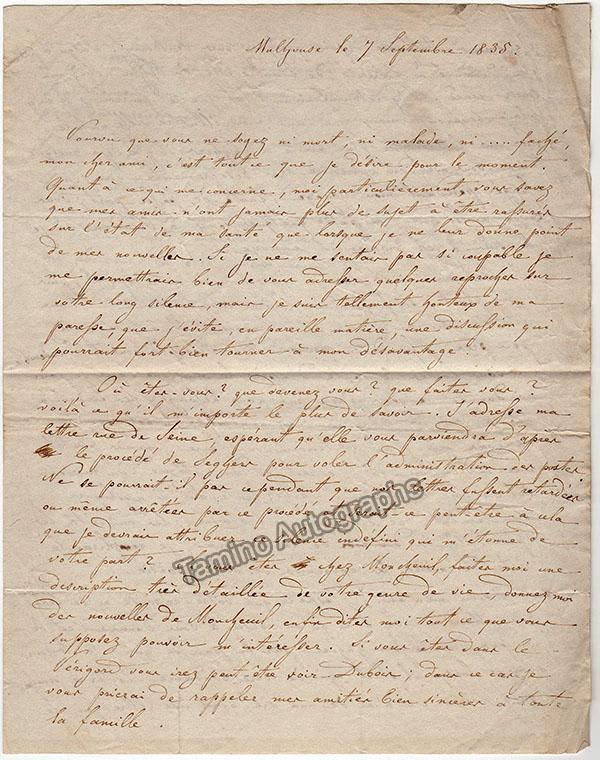 Mulhouse le 7 Septembre 1835.
Pourvu que vous ne soyez ni mort, ni malade, ni ..... faché,
mon cher ami, c'est tout ce que je désire pour le moment.
Quant à ce qui me concerne, moi particulièrement, vous savez
que mes amis n'ont jamais plus de sujet à être rassurés
sur l'état de ma santé que lorsque je ne leur donne point
de mes nouvelles. Si je ne me sentais pas si coupable je
me permettrais bien de vous adresser quelques reproches sur
votre long silence, mais je suis tellement honteux de ma
paresse, que j'évite, en pareille matière, une discussion qui
pourrait fort-bien tourner à mon désavantage.
Où êtes-vous? que devenez vous? que faites vous?
voilà ce qu'il m'importe le plus de savoir. J'adresse ma
lettre rue de Seine, espérant qu'elle vous parviendra d'après
le procédé de Seghers pour voler l'administration des postes.
Ne se pourrait-il pas cependant que nos lettres fussent retardées
ou même arrêtées par ce procédé et serait-ce peut-être à cela
que je devrais attribuer ce silence indéfini qui m'étonne de
votre part? Si vous êtes chez Moncheuil, faites moi une
description très détaillée de votre genre de vie, donnez moi
des nouvelles de Moncheuil, enfin dites moi tout ce que vous
supposez pouvoir m'intéresser. Si vous êtes dans le
Périgord vous irez peut-être voir Dubois; dans ce cas je
vous prierai de rappeler mes amitiés bien sincères à toute
la famille.
Tamino Autographs